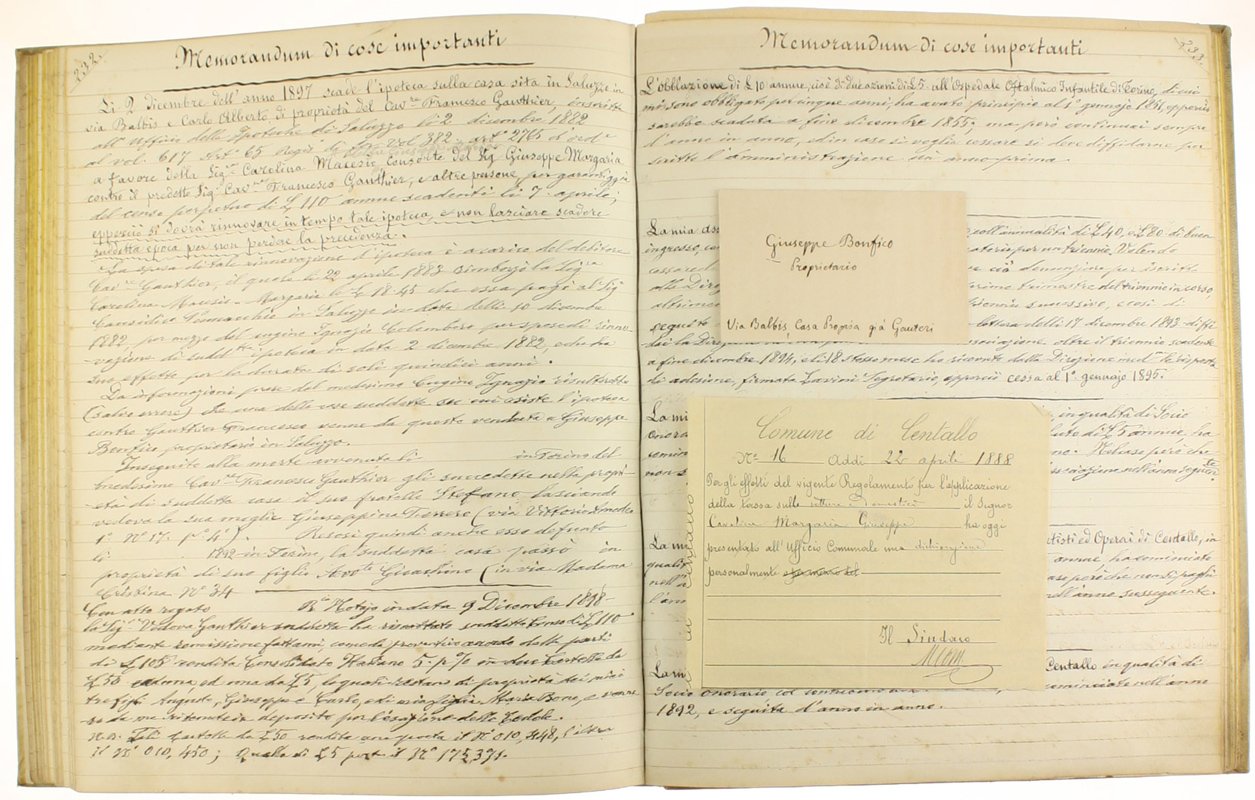 232.
Memorandum di cose importanti
Li 2 dicembre dell'anno 1897 scade l'ipoteca sulla casa sita in Saluzzo in
via Balbis e Carlo Alberto di proprietà del Cav.re Francesco Gauthier, inscritta
all'Ufficio delle Ipoteche di Saluzzo li 2 dicembre 1882
al vol. 617 art. 65 vol 382, art. 2765
a favore della Sig.a Carolina Maresio Consorte del Sig. Giuseppe Margaria
contro il predetto Sig. Cav.re Francesco Gauthier, e altre persone, per garanzia
del censo perpetuo di £ 110 annue scadenti li 7 aprile;
epperciò si dovrà rinnovare in tempo tale ipoteca, e non lasciare scadere
suddetta epoca per non perdere la precedenza.
La spesa di tale rinnovazione d'ipoteca è a carico del debitore
Cav.re Gauthier, il quale li 22 aprile 1883 rimborsò la Sig.a
Carolina Maresio-Margaria le £ 18.45 che essa pagò al Sig.
Causidico in Saluzzo in data delli 10 dicembre
1882, per mezzo del cugino Ignazio Colombero per spese di rinno-
vazione di sudd.tta ipoteca in data 2 dicembre 1882, ed ha
suo effetto per la durata di soli quindici anni.
Da informazioni prese dal medesimo Cugino Ignazio risulterebbe
(salvo errore) che una delle case suddette su cui esiste l'ipoteca
contro Gauthier Francesco venne da questo venduta a Giuseppe
Bonfico proprietario in Saluzzo.
In seguito alla morte avvenuta li in Torino del
medesimo Cav.re Francesco Gauthier gli succedette nella propri-
età di suddetta casa il suo fratello Stefano, lasciando
vedova la sua moglie Giuseppina (via Vittorio Amedeo
1° N° 17. P. 4°). Resosi quindi anche esso defunto
li 1892 in Torino, la suddetta casa passò in
proprietà di suo figlio Avv.to Gioachino (in via Madama
Cristina N° 34
Con atto rogato R.o Notajo in data 9 Dicembre 1898
la Sig.a Vedova Gauthier suddetta ha riscattato suddetto Censo di £ 110
mediante remissione fattami, come da preventivo accordo delle parti
di £ 105 rendita Consolidato Italiano 5 p % in due Cartelle da
£ 50 caduna, ed una da £ 5, le quali restano di proprietà dei miei
tre figli Augusto, Giuseppe e Carlo, e di mia figlia Maria Bono, e venne-
ro da me ritenute in deposito per l'esazione delle Cedole.
N.B. Tali Cartelle da £ 50 rendita una porta il N° 010,448, l'altra
il N° 010,450; Quella di £ 5 porta il N° 175,371.
233.
Memorandum di cose importanti
L'obblazione di £ 10 annue, cioè di due azioni di £ 5. all'Ospedale Oftalmico Infantile di Torino, di cui
mi sono obbligato per cinque anni, ha avuto principio al 1° gennajo 1851, epperciò
sarebbe scaduta a fine dicembre 1855; ma però continuai sempre
d'anno in anno, ed in caso si voglia cessare si deve diffidarne per
iscritto l'amministrazione un anno prima.
La mia ass
coll'annualità di £ 40, e £ 80 di buon
ingresso, co
per un triennio. Volendo
cessare
dare già demenzione per iscritto
alla Dire
primo trimestre del triennio in corso,
altrimen
triennio successivo, e così di
seguito
lettera delli 17 dicembre 1893 diffi-
dai la Direzione
associazione oltre il triennio scadente
a fine dicembre 1894, e li 18 stesso mese ho ricevuto dalla Direzione med.ma la risposta
di adesione, firmata Lavini Segretario, epperciò cessa al 1° gennajo 1895.
Giuseppe Bonfico
Proprietario
Via Balbis, Casa Propria già Gauteri
La mi
in qualità di Socio
onora
di £ 5 annue, ha
semin
non s
associazione nell'anno seguente
Comune di Centallo
N° 16 Addì 22 aprile 1888
Per gli effetti del vigente Regolamento per l'applicazione
della tassa sulle vetture e domestici il Signor
Cavaliere Margaria Giuseppe ha oggi
presentato all'Ufficio Comunale una dichiarazione
personalmente
Il Sindaco
La mi
Artisti ed Operai di Centallo, in
qualit
annue, ha cominciato
nell'a
però che non si paghi
l'anno
nell'anno susseguente.
La mi
Centallo in qualità di
Socio onorario
cominciato nell'anno
1892, e seguita d'anno in anno.